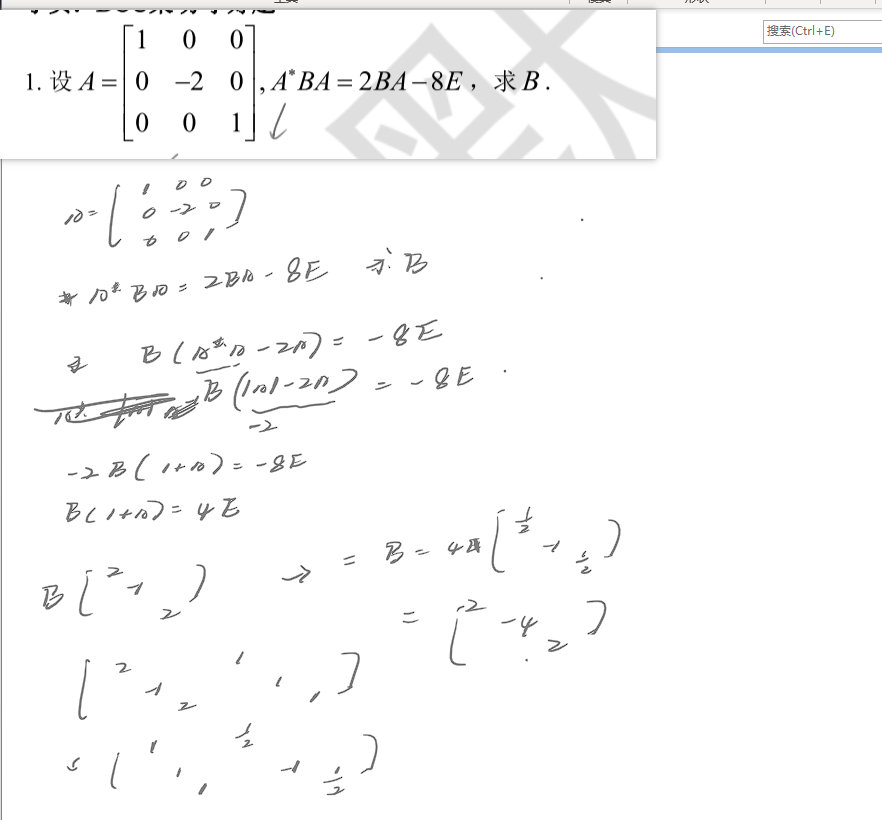 搜索(Ctrl+E)
1. 设 A = [1 0 0; 0 −2 0; 0 0 1], A*BA = 2BA − 8E, 求 B.
A = [1 0 0; 0 -2 0; 0 0 1]
A* BA = 2BA - 8E 求 B
B(A*A - 2A) = -8E
B(|A| - 2A) = -8E
-2
-2B(1+A) = -8E
B(1+A) = 4E
B[2 -1 2] → = B = 4[1/2 -1 1/2]
= [2 -4 2]
[2 -1 2 1 1 1]
[1 1 1 1/2 -1 1/2]